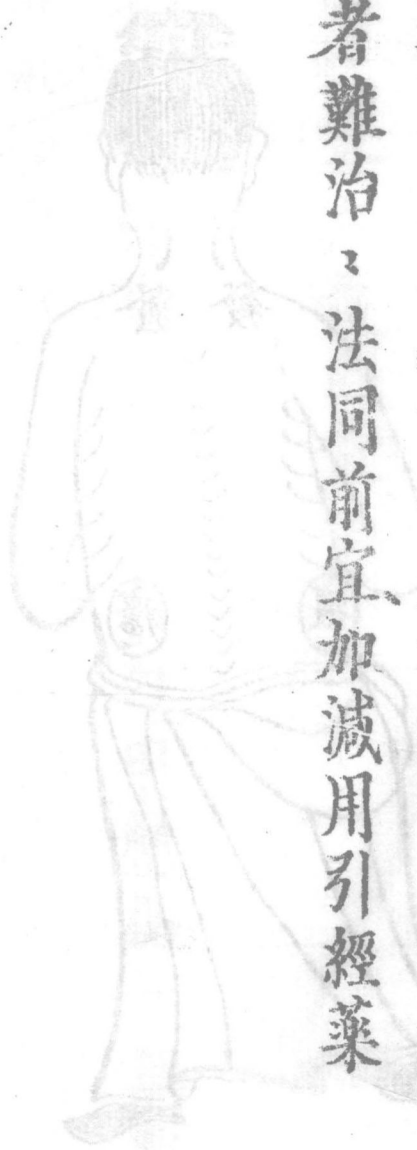 者難治〻法同前宜加減用引經藥